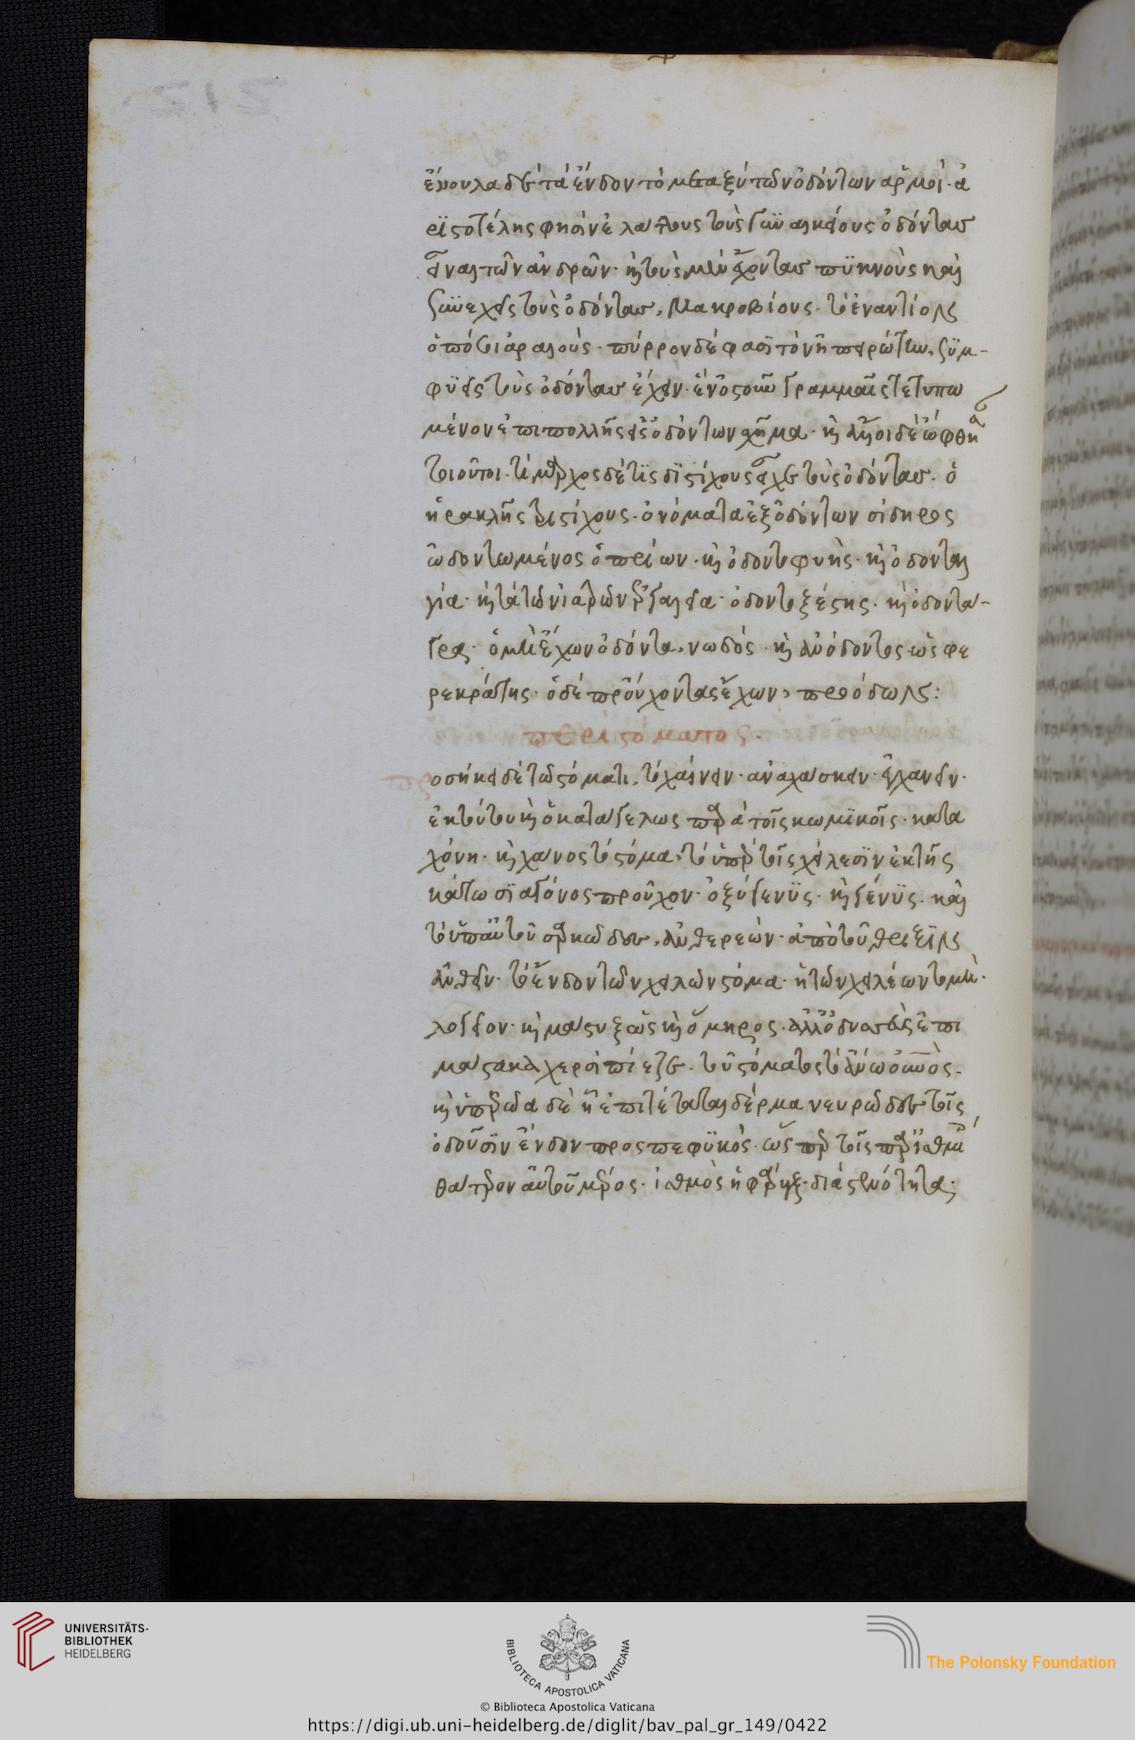 ἔνουλα δὲ τὰ ἔνδον τὸ μεταξὺ τῶν ὀδόντων ἁρμοί· ἀ
ριστοτέλης φησὶν ἐλάττους τοὺς γυναικείους ὀδόντας
εἶναι τῶν ἀνδρῶν· καὶ τοὺς μὲν ἔχοντας πυκνοὺς καὶ
συνεχεῖς τοὺς ὀδόντας, μακροβίους· τὸ ἐναντίον δὲ
ὁπόσοι ἀραιούς· πύρρον δέ φασι τὸν ἠπειρώτην, συμ-
φυεῖς τοὺς ὀδόντας ἔχειν· ἑνὸς ὀστοῦ γραμμαῖς τετυπω
μένον ἐπιπολῆς εἰς ὀδόντων σχῆμα· καὶ ἄλλοι δὲ ὤφθησαν
τοιοῦτοι· τίμαρχος δέ τις διστίχους εἶχε τοὺς ὀδόντας· ὁ
ἡρακλῆς τριστίχους· ὀνόματα ἐξ ὀδόντων σίδηρος
ὠδοντωμένος ὁ πρίων· καὶ ὀδοντοφυής· καὶ ὀδονταλ
γία· καὶ τὰ τῶν ἰατρῶν ἐργαλεῖα· ὀδοντοξέστης· καὶ ὀδοντά-
γρα· ὁ μὴ ἔχων ὀδόντα, νωδός· καὶ ἀνόδοντος ὡς φε
ρεκράτης· ὁ δὲ προύχοντας ἔχων, προόδων:
περὶ στόματος.
προσήκει δὲ τῷ στόματι, τὸ χαίνειν· ἀναχάσκειν· ἐγχανεῖν·
ἐκ τούτου καὶ ὁ κατάγελως παρὰ τοῖς κωμικοῖς· κατα
χήνη· καὶ χάνος τὸ στόμα· τὸ ὑπὸ τοῖς χείλεσιν ἐκ τῆς
κάτω σιαγόνος προῦχον· ὀξύγενυς· καὶ γένυς· καὶ
τὸ ὑπ' αὐτοῦ σαρκῶδες, ἀνθερεών· ἀπὸ τοῦ θριξὶν
ἀνθεῖν· τὸ ἔνδον τῶν χειλῶν στόμα· ἢ τῶν χειλέων τομή·
λοῖσθον· καὶ μάσταξ ὡς καὶ ὅμηρος· ἀλλ' ὀδυσσεὺς ἐπὶ
μάστακα χερσὶ πίεζε· τοῦ στόματος τὸ ἄνω οὐρανός·
καὶ ὑπερῴα δὲ ᾗ ἐπιτέταται δέρμα νευρῶδες τοῖς
ὀδοῦσιν ἔνδον προσπεφυκός· ὡς παρὰ τοῖς παρίσθμια
θάτερον αὐτοῦ μέρος· ἰσθμὸς ἢ φάρυγξ· διὰ στενότητα·
UNIVERSITÄTS-
BIBLIOTHEK
HEIDELBERG
BIBLIOTECA APOSTOLICA VATICANA
The Polonsky Foundation
© Biblioteca Apostolica Vaticana
https://digi.ub.uni-heidelberg.de/diglit/bav_pal_gr_149/0422